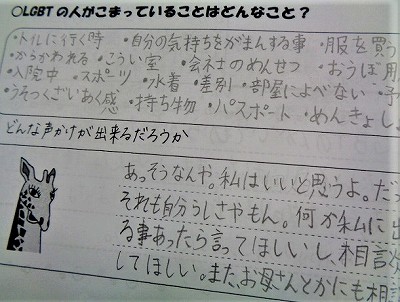 ○LGBTの人がこまっていることはどんなこと？
・トイレに行く時 ・自分の気持ちをがまんする事 ・服を買う
・からかわれる ・こうい室 ・会社のめんせつ ・おうぼ用
・入院中 ・スポーツ ・水着 ・差別 ・部屋によべない ・予
・うそつくざいあく感 ・持ち物 ・パスポート ・めんきょしょ
どんな声かけが出来るだろうか
あっそうなんや。私はいいと思うよ。だっ
それも自分らしさやもん。何か私に出
る事あったら言ってほしいし、相談
してほしい。また、お母さんとかにも相談